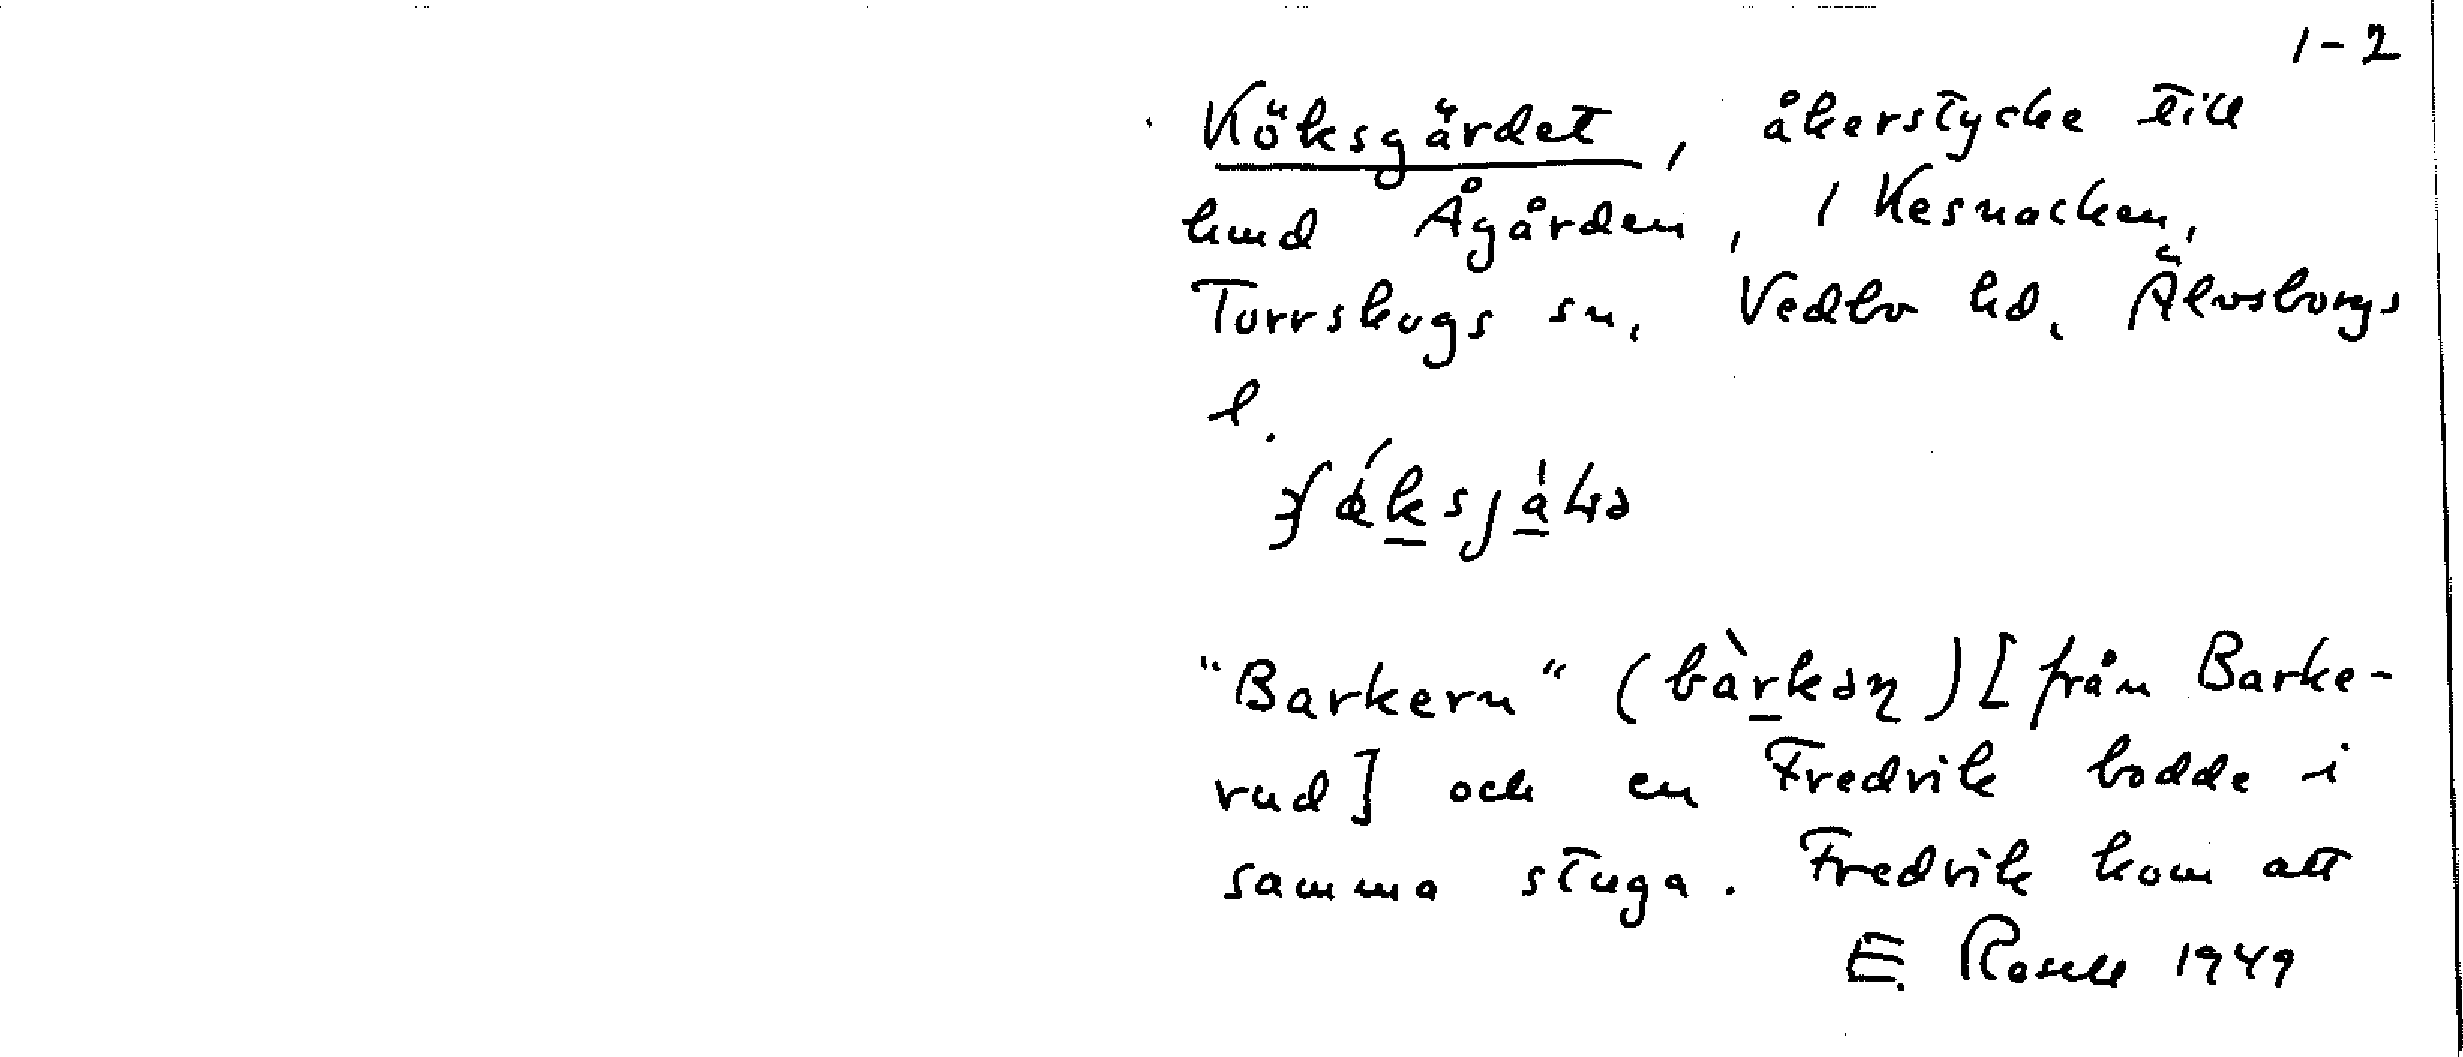 1-2
Köksgärdet, åkerstycke till
hmd Ågården, 1 Kesnacken,
Torrskogs sn, Vedbo hd, Älvsborgs
l.
"Barkern" (bàrkən) [från Barke-
rud] och en Fredrik bodde i
samma stuga. Fredrik kom att
E. Rosell 1949